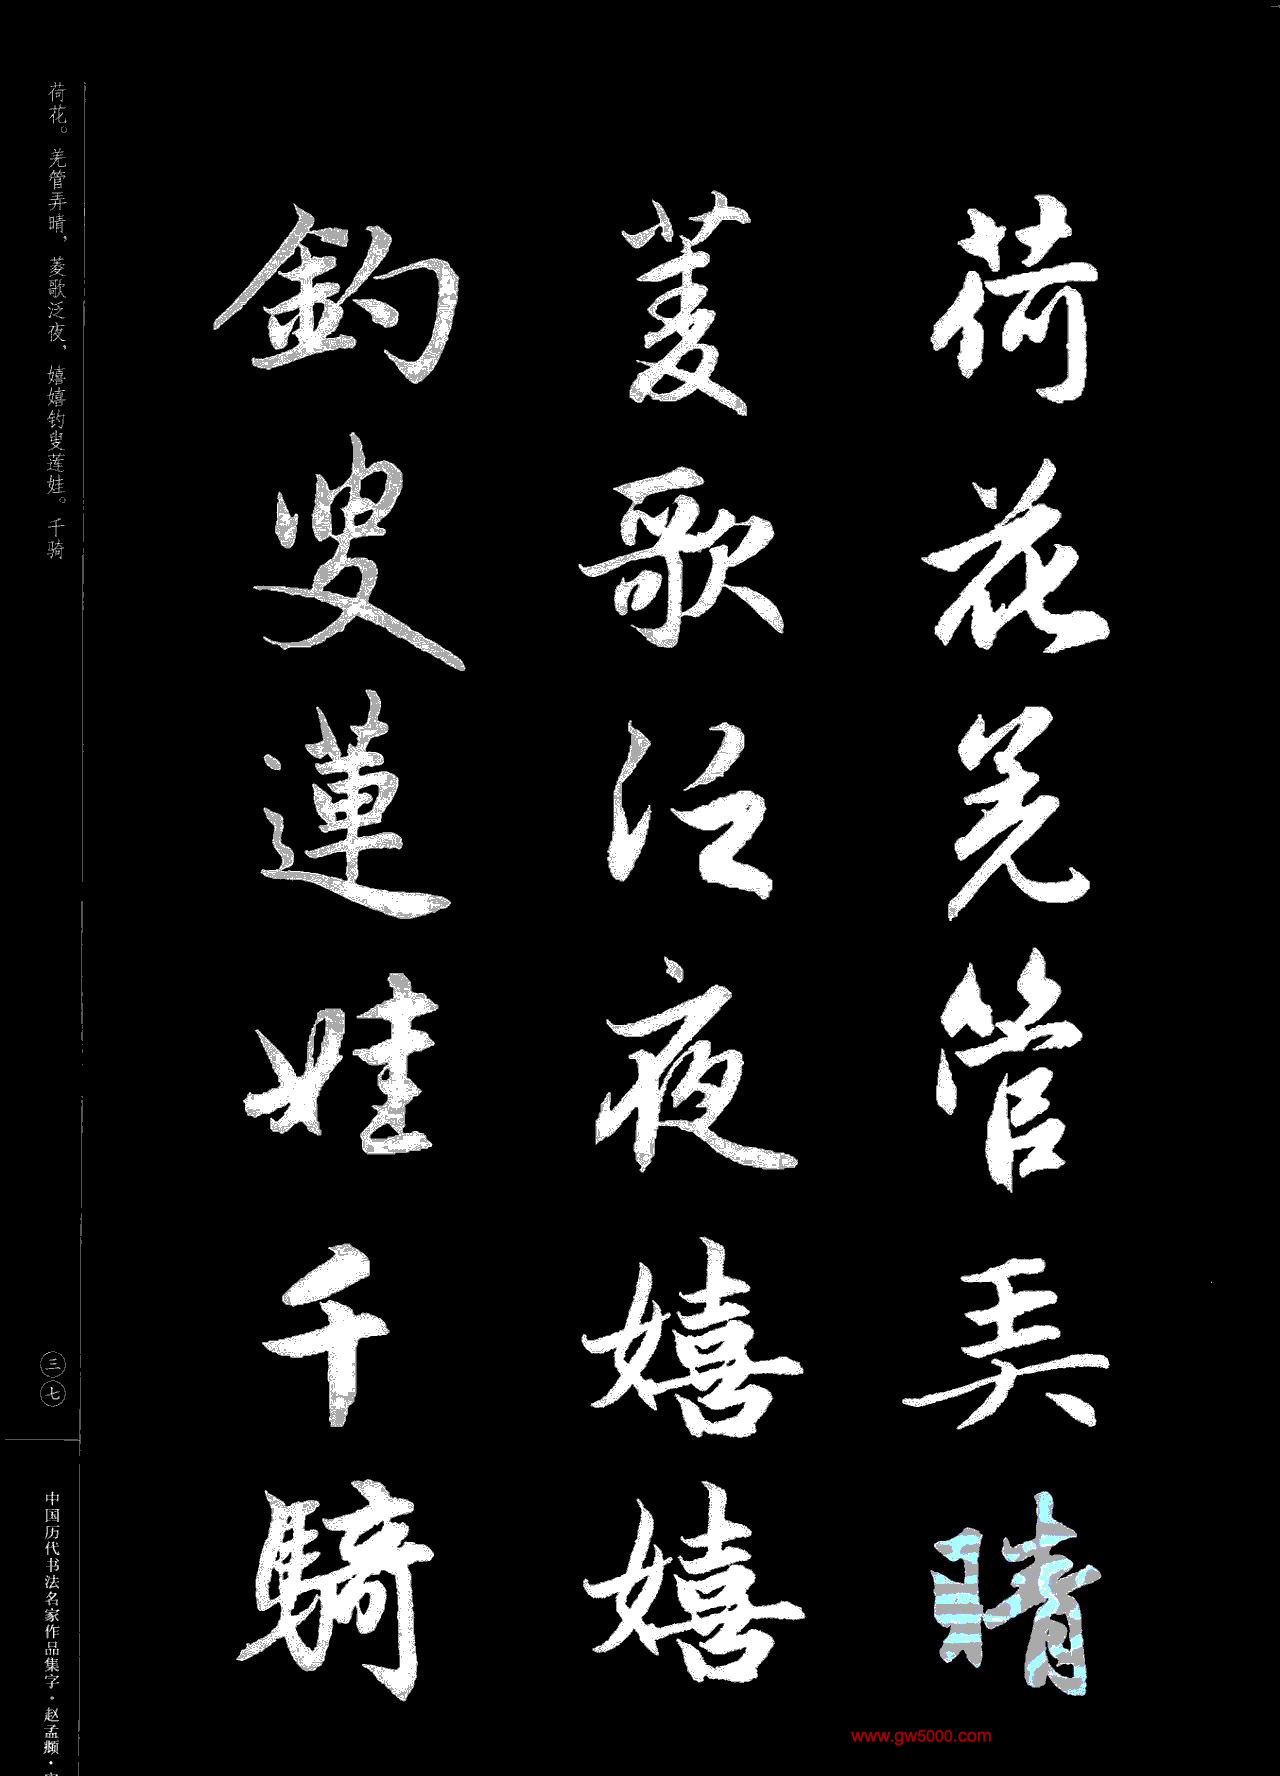 荷花羌管弄晴
菱歌泛夜嬉嬉
釣叟蓮娃千騎
荷花。羌管弄晴，菱歌泛夜，嬉嬉钓叟莲娃。千骑
三七
中国历代书法名家作品集字·赵孟頫·
www.gw5000.com